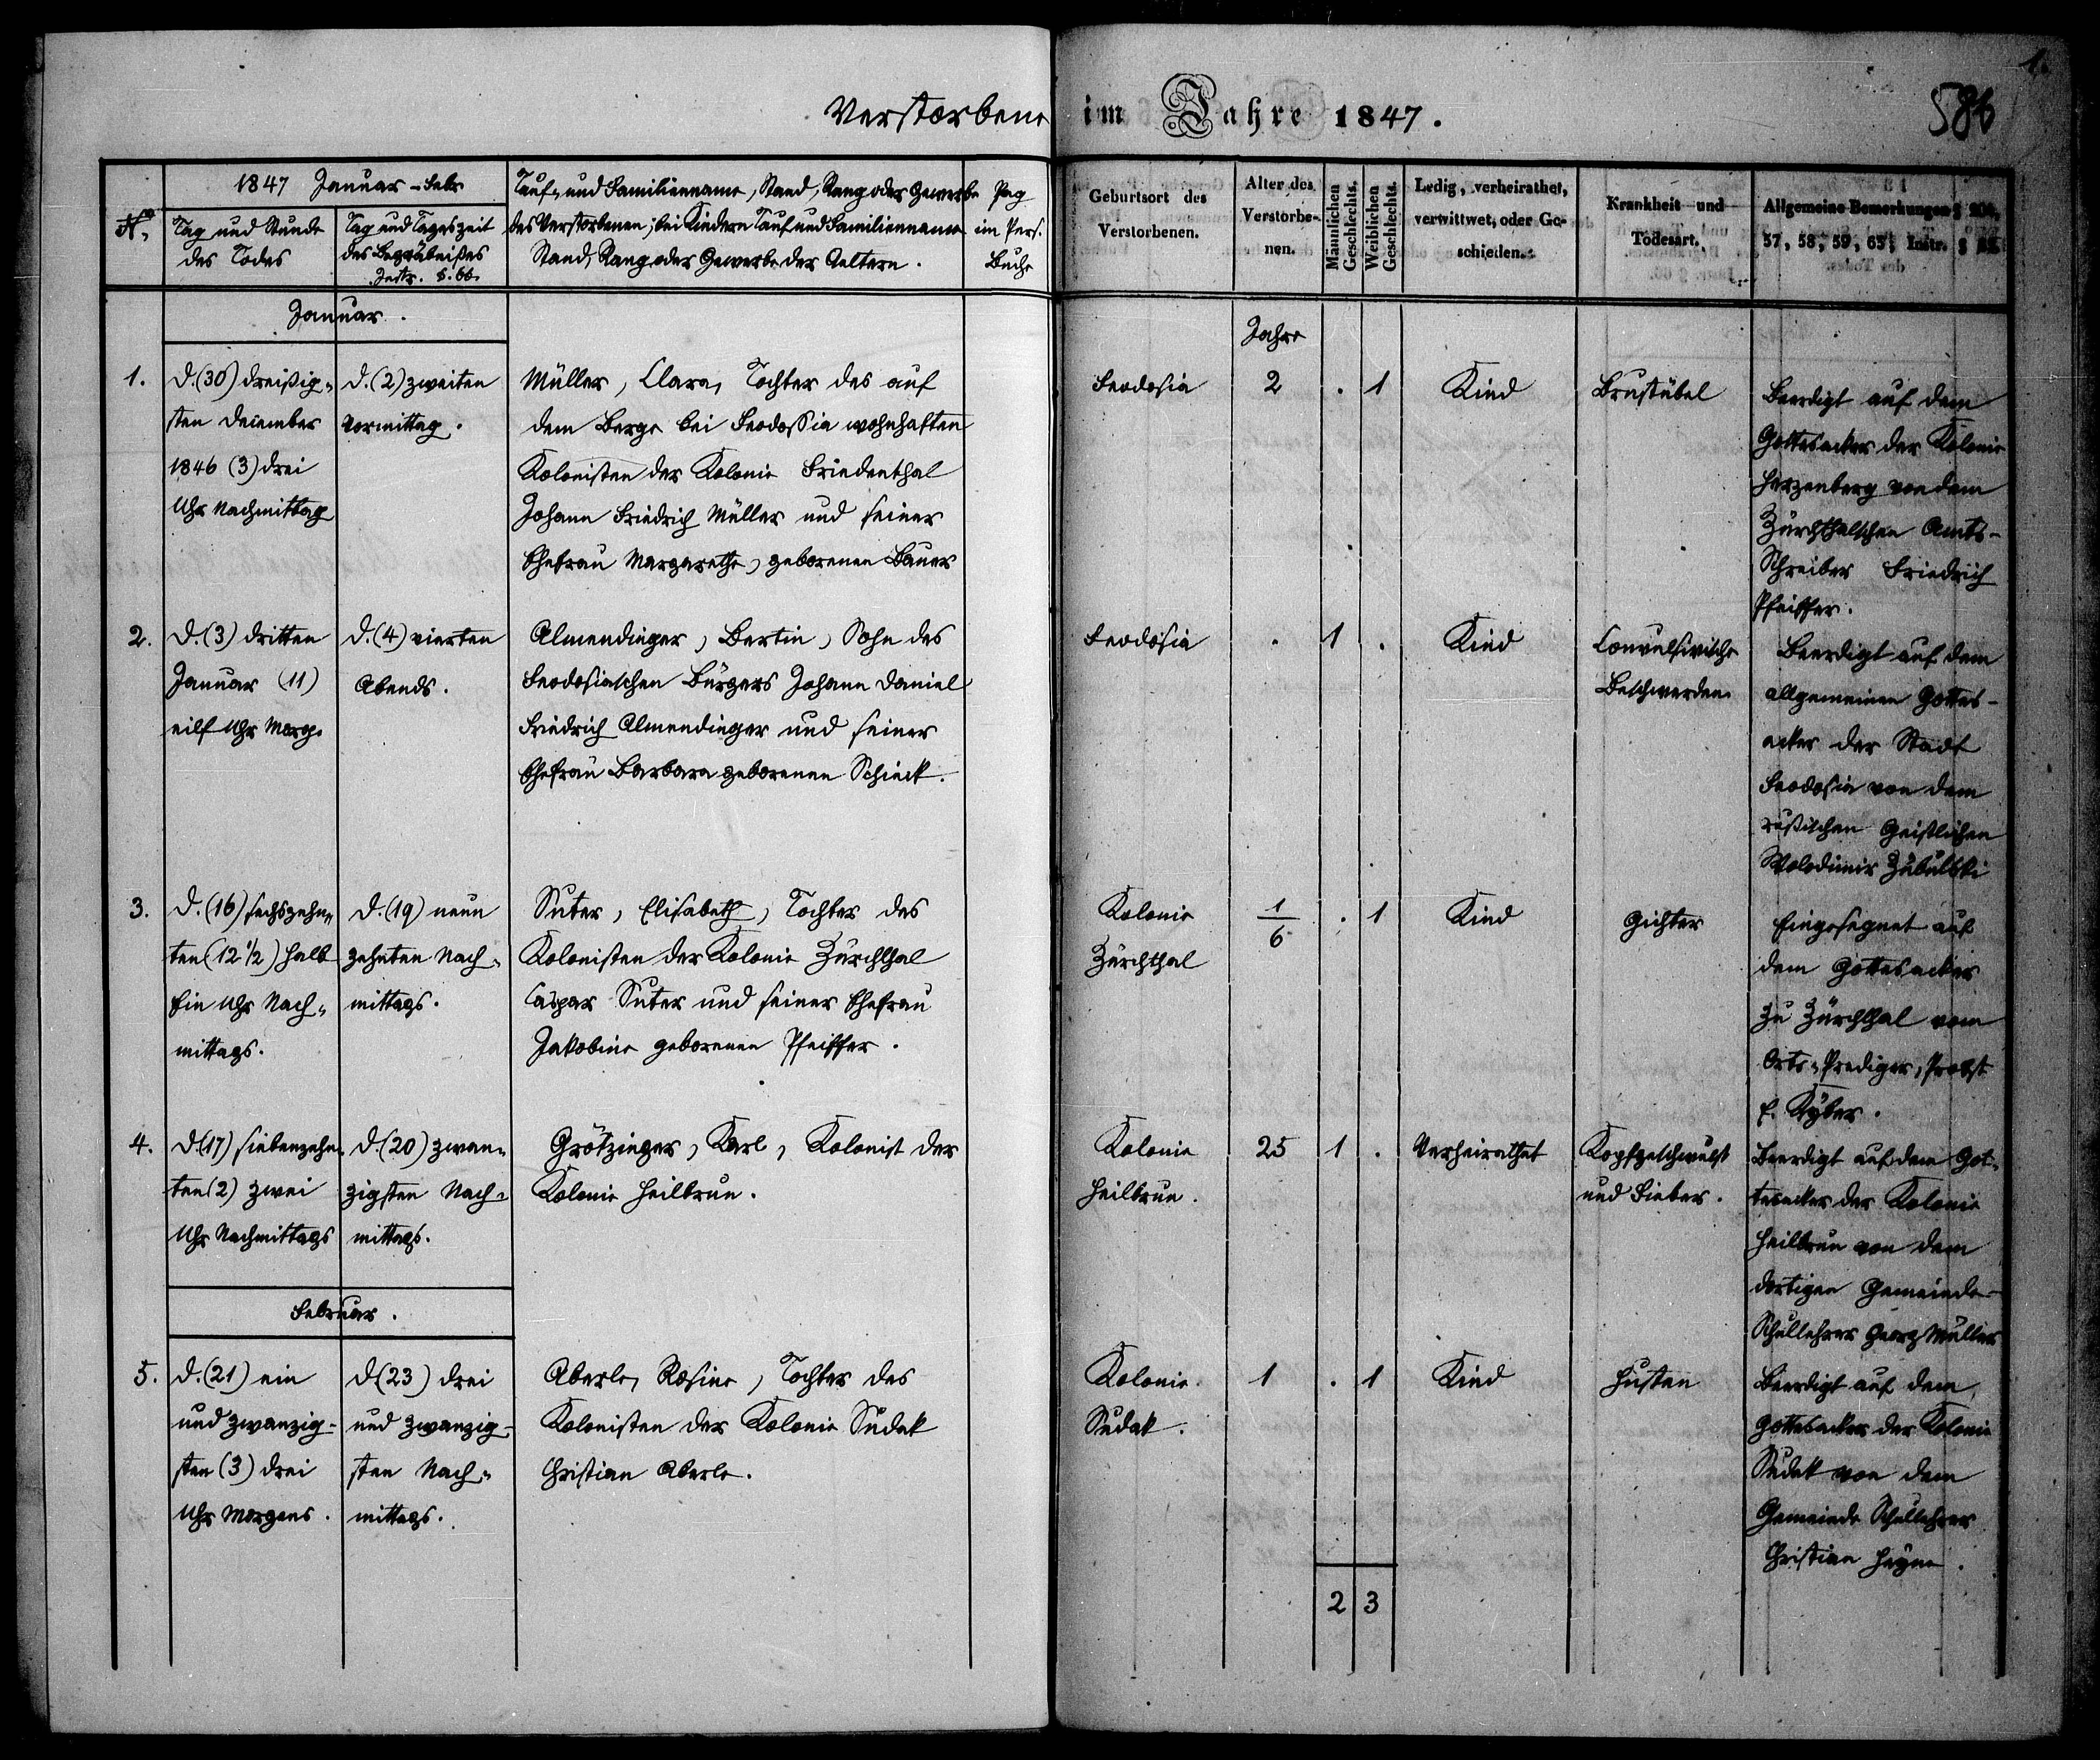 1.
Verstorbene im Jahre 1847.
586
No.
1847 Januar – Febr
Tag und Stunde
des Todes
Tag und Tageszeit
des Begräbnißes
Instr. §. 66.
Tauf- und Familienname, Stand, Rang oder Gewerbe
des Verstorbenen; bei Kindern Tauf und Familienname
Stand, Rang oder Gewerbe der Aeltern.
Pag
im Pers.
Buche
Geburtsort des
Verstorbenen.
Alter des
Verstorbe-
nen.
Männlichen
Geschlechts.
Weiblichen
Geschlechts.
Ledig, verheirathet,
verwittwet, oder Ge-
schieden.
Krankheit und
Todesart.
Allgemeine Bemerkungen §
57, 58, 59, 65, Instr. §
Januar.
Jahre
1.
D. (30) dreißig-
sten December
1846 (3) drei
Uhr Nachmittag
D. (2) zweiten
Vormittag.
Müller, Clara, Tochter des auf
dem Berge bei Feodossia wohnhaften
Kolonisten der Kolonie Friedenthal
Johann Friedrich Müller und seiner
Ehefrau Margarethe, geborenen Bauer
Feodosia
2
.
1
Kind
Brustübel
Beerdigt auf dem
Gottesacker der Kolonie
Herzenberg von dem
Zürchthalschen Amts-
Schreiber Friedrich
Pfeiffer.
2.
D. (3) dritten
Januar (11)
eilf Uhr Morg.
D. (4) vierten
Abends.
Almendinger, Bertin, Sohn des
Feodosiaschen Bürgers Johann Daniel
Friedrich Almendinger und seiner
Ehefrau Barbara geborenen Schieck.
Feodosia
.
1
.
Kind
Convulsivische
Beschwerden
Beerdigt auf dem
allgemeinen Gottes-
acker der Stadt
Feodosia von dem
rußischen Geistlichen
Wolodimir
3.
D. (16) sechszehn-
ten (12 1/2) halb
Ein Uhr Nach-
mittags.
D. (19) neun
zehnten Nach-
mittags.
Suter, Elisabeth, Tochter des
Kolonisten der Kolonie Zürchthal
Caspar Suter und seiner Ehefrau
Jakobine geborenen Pfeiffer.
Kolonie
Zürchthal
1/6
.
1
Kind
Gichter
Eingesegnet auf
dem Gottesacker
zu Zürchthal vom
Orts-Prediger, Probst
F. Kyber.
4.
D. (17) siebenzehn-
ten (2) zwei
Uhr Nachmittags
D. (20) zwan-
zigsten Nach-
mittags.
Grötzinger, Karl, Kolonist der
Kolonie Heilbrun.
Kolonie
Heilbrun.
25
1
.
Verheirathet
Kopfgeschwulst
und Fieber.
Beerdigt auf dem Got-
tesacker der Kolonie
Heilbrun von dem
dortigen Gemeinde-
Schullehrer Georg Müller
Februar.
5.
D. (21) ein
und zwanzig-
sten (3) drei
Uhr Morgens.
D (23) drei
und zwanzig-
sten Nach-
mittags.
Aberle, Rosine, Tochter des
Kolonisten der Kolonie Sudak
Christian Aberle.
Kolonie
Sudak.
1
.
1
Kind
Husten
Beerdigt auf dem
Gottesacker der Kolonie
Sudak von dem
Gemeinde Schullehrer
Christian Heyne.
2
3